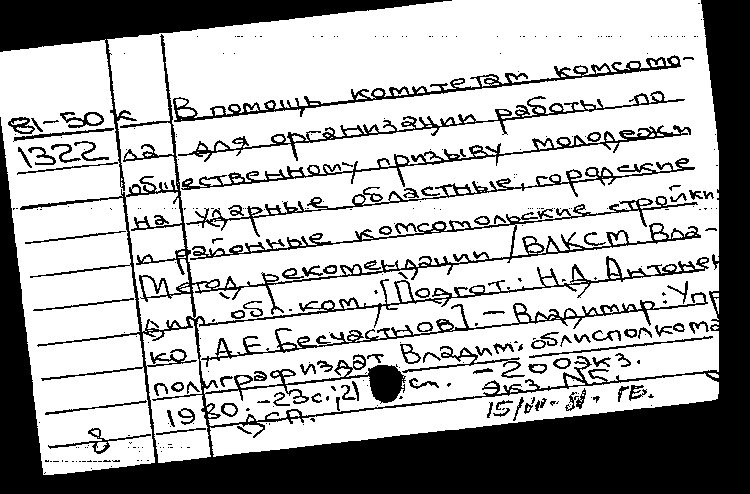 В помощь комитетам комсомо-
81-50к
1322
ла для организации работы по
общественному призыву молодежи
на ударные областные, городские
и районные комсомольские стройки:
Метод. рекомендации /ВЛКСМ. Вла-
дим. обл. ком.; [Подгот.: Н.Д. Антонен
ко, А.Е. Бесчастнов]. - Владимир: Упр
полиграфиздат Владим. облисполкома
1980. - 23с.; 21 см. - 200экз.
ДСП. Экз. №5.
8